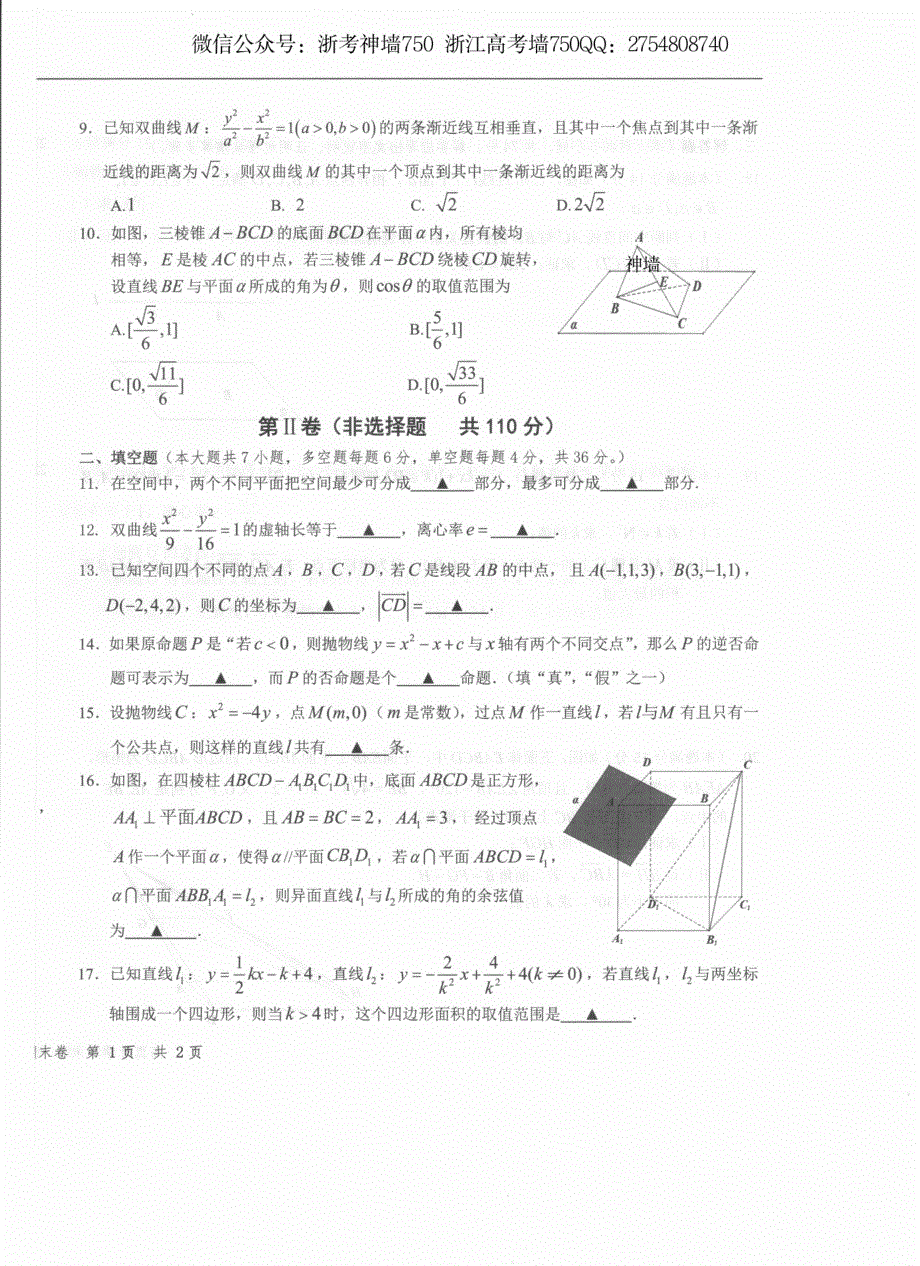 微信公众号：浙考神墙750 浙江高考墙750QQ：2754808740
9．已知双曲线 M：y²/a² − x²/b² = 1(a > 0, b > 0) 的两条渐近线互相垂直，且其中一个焦点到其中一条渐
近线的距离为 √2，则双曲线 M 的其中一个顶点到其中一条渐近线的距离为
A.1 B. 2 C. √2 D.2√2
10．如图，三棱锥 A−BCD 的底面 BCD 在平面 α 内，所有棱均
相等，E 是棱 AC 的中点，若三棱锥 A−BCD 绕棱 CD 旋转，
设直线 BE 与平面 α 所成的角为 θ，则 cosθ 的取值范围为
A.[√3/6,1] B.[5/6,1]
C.[0,√11/6] D.[0,√33/6]
A
神墙
E
D
B
C
α
第Ⅱ卷（非选择题 共 110 分）
二、填空题（本大题共 7 小题，多空题每题 6 分，单空题每题 4 分，共 36 分。）
11．在空间中，两个不同平面把空间最少可分成 ▲ 部分，最多可分成 ▲ 部分.
12．双曲线 x²/9 − y²/16 = 1 的虚轴长等于 ▲ ，离心率 e = ▲ .
13．已知空间四个不同的点 A，B，C，D，若 C 是线段 AB 的中点，且 A(−1,1,3)，B(3,−1,1)，
D(−2,4,2)，则 C 的坐标为 ▲ ，|CD| = ▲ .
14．如果原命题 P 是“若 c < 0，则抛物线 y = x² − x + c 与 x 轴有两个不同交点”，那么 P 的逆否命
题可表示为 ▲ ，而 P 的否命题是个 ▲ 命题.（填“真”，“假”之一）
15．设抛物线 C：x² = −4y，点 M(m,0)（m 是常数），过点 M 作一直线 l，若 l与M 有且只有一
个公共点，则这样的直线 l 共有 ▲ 条.
16．如图，在四棱柱 ABCD − A₁B₁C₁D₁ 中，底面 ABCD 是正方形，
AA₁ ⊥ 平面ABCD，且 AB = BC = 2，AA₁ = 3，经过顶点
A 作一个平面 α，使得 α//平面 CB₁D₁，若 α∩平面 ABCD = l₁，
α∩平面 ABB₁A₁ = l₂，则异面直线 l₁ 与 l₂ 所成的角的余弦值
为 ▲ .
D
C
α
A
B
D₁
C₁
A₁
B₁
17．已知直线 l₁：y = 1/2 kx − k + 4，直线 l₂：y = −2/k² x + 4/k² + 4(k ≠ 0)，若直线 l₁，l₂ 与两坐标
轴围成一个四边形，则当 k > 4 时，这个四边形面积的取值范围是 ▲ .
末卷 第 1 页 共 2 页